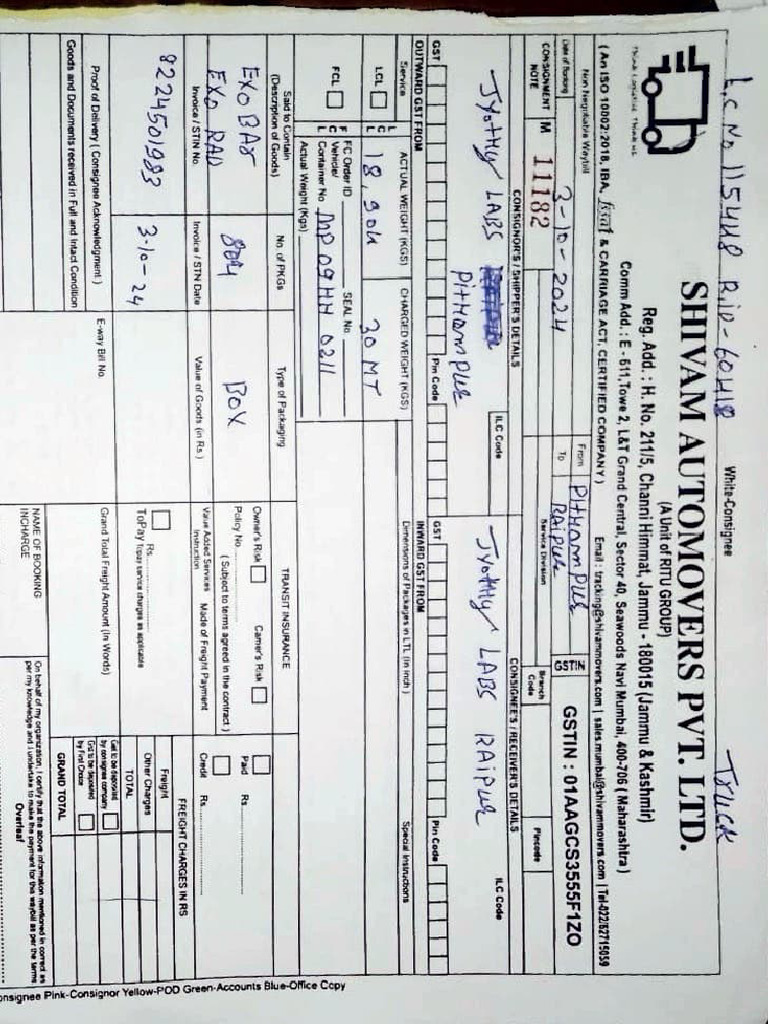 L.C. No 115448 RJP-60418 Truck
White-Consignee
SHIVAM AUTOMOVERS PVT. LTD.
(A Unit of RITU GROUP)
Reg. Add. : H. No. 211/5, Channi Himmat, Jammu - 180015 (Jammu & Kashmir)
Comm Add. : E - 611, Towe 2, L&T Grand Central, Sector 40, Seawoods Navi Mumbai, 400-706 ( Maharashtra )
( An ISO 10002:2018, IBA, & CARRIAGE ACT, CERTIFIED COMPANY ) Email : tracking@shivammovers.com | sales.mumbai@shivammovers.com | Tel-022/62715059
Non Negotiable Waybill
Date of Booking 3-10-2024 From PITHAMPUR GSTIN GSTIN : 01AAGCS3555F1ZO
To RAIPUR
CONSIGNMENT NOTE M 11182 Service Division Branch Code Pincode
CONSIGNOR'S / SHIPPER'S DETAILS CONSIGNEE'S / RECEIVER'S DETAILS
ILC Code ILC Code
Jyothy LABS Jyothy LABS RAIPUR
PITHAMPUR
Pin Code Pin Code
GST GST
OUTWARD GST FROM INWARD GST FROM
Service ACTUAL WEIGHT (KGS) CHARGED WEIGHT (KGS) Dimensions of Packages in LTL (In Inch) Special Instructions
LCL LCL 18,904 30 MT
FCL FCL FC Order ID SEAL No.
Vehicle/ Container No. MP 09 HH 0211
Actual Weight (Kgs)
Said to Contain (Description of Goods) No. of PKGs Type of Packaging TRANSIT INSURANCE FREIGHT CHARGES IN RS
EXO BAR 804 BOX Owner's Risk Carrier's Risk Paid Rs
EXO RAD Policy No. ( Subject to terms agreed in the contract ) Credit Rs.
Invoice / STIN No. Invoice / STN Date Value of Goods (in Rs.) Value Added Services Instruction Mode of Freight Payment
8224501983 3-10-24 ToPay Rs. Freight
(Topay service charges as applicable Other Charges
TOTAL
Proof of Delivery ( Consignee Acknowledgment ) E-way Bill No. Grand Total Freight Amount (In Words) Gst to be deposited by consignee company
Gst to be deposited by First Choice
Goods and Documents received in Full and Intact Condition GRAND TOTAL
NAME OF BOOKING INCHARGE On behalf of my organization, I certify that the above information mentioned in correct as
per my knowledge and I undertake to make the payment for this waybill as per the terms
Overleaf
onsignee Pink-Consignor Yellow-POD Green-Accounts Blue-Office Copy